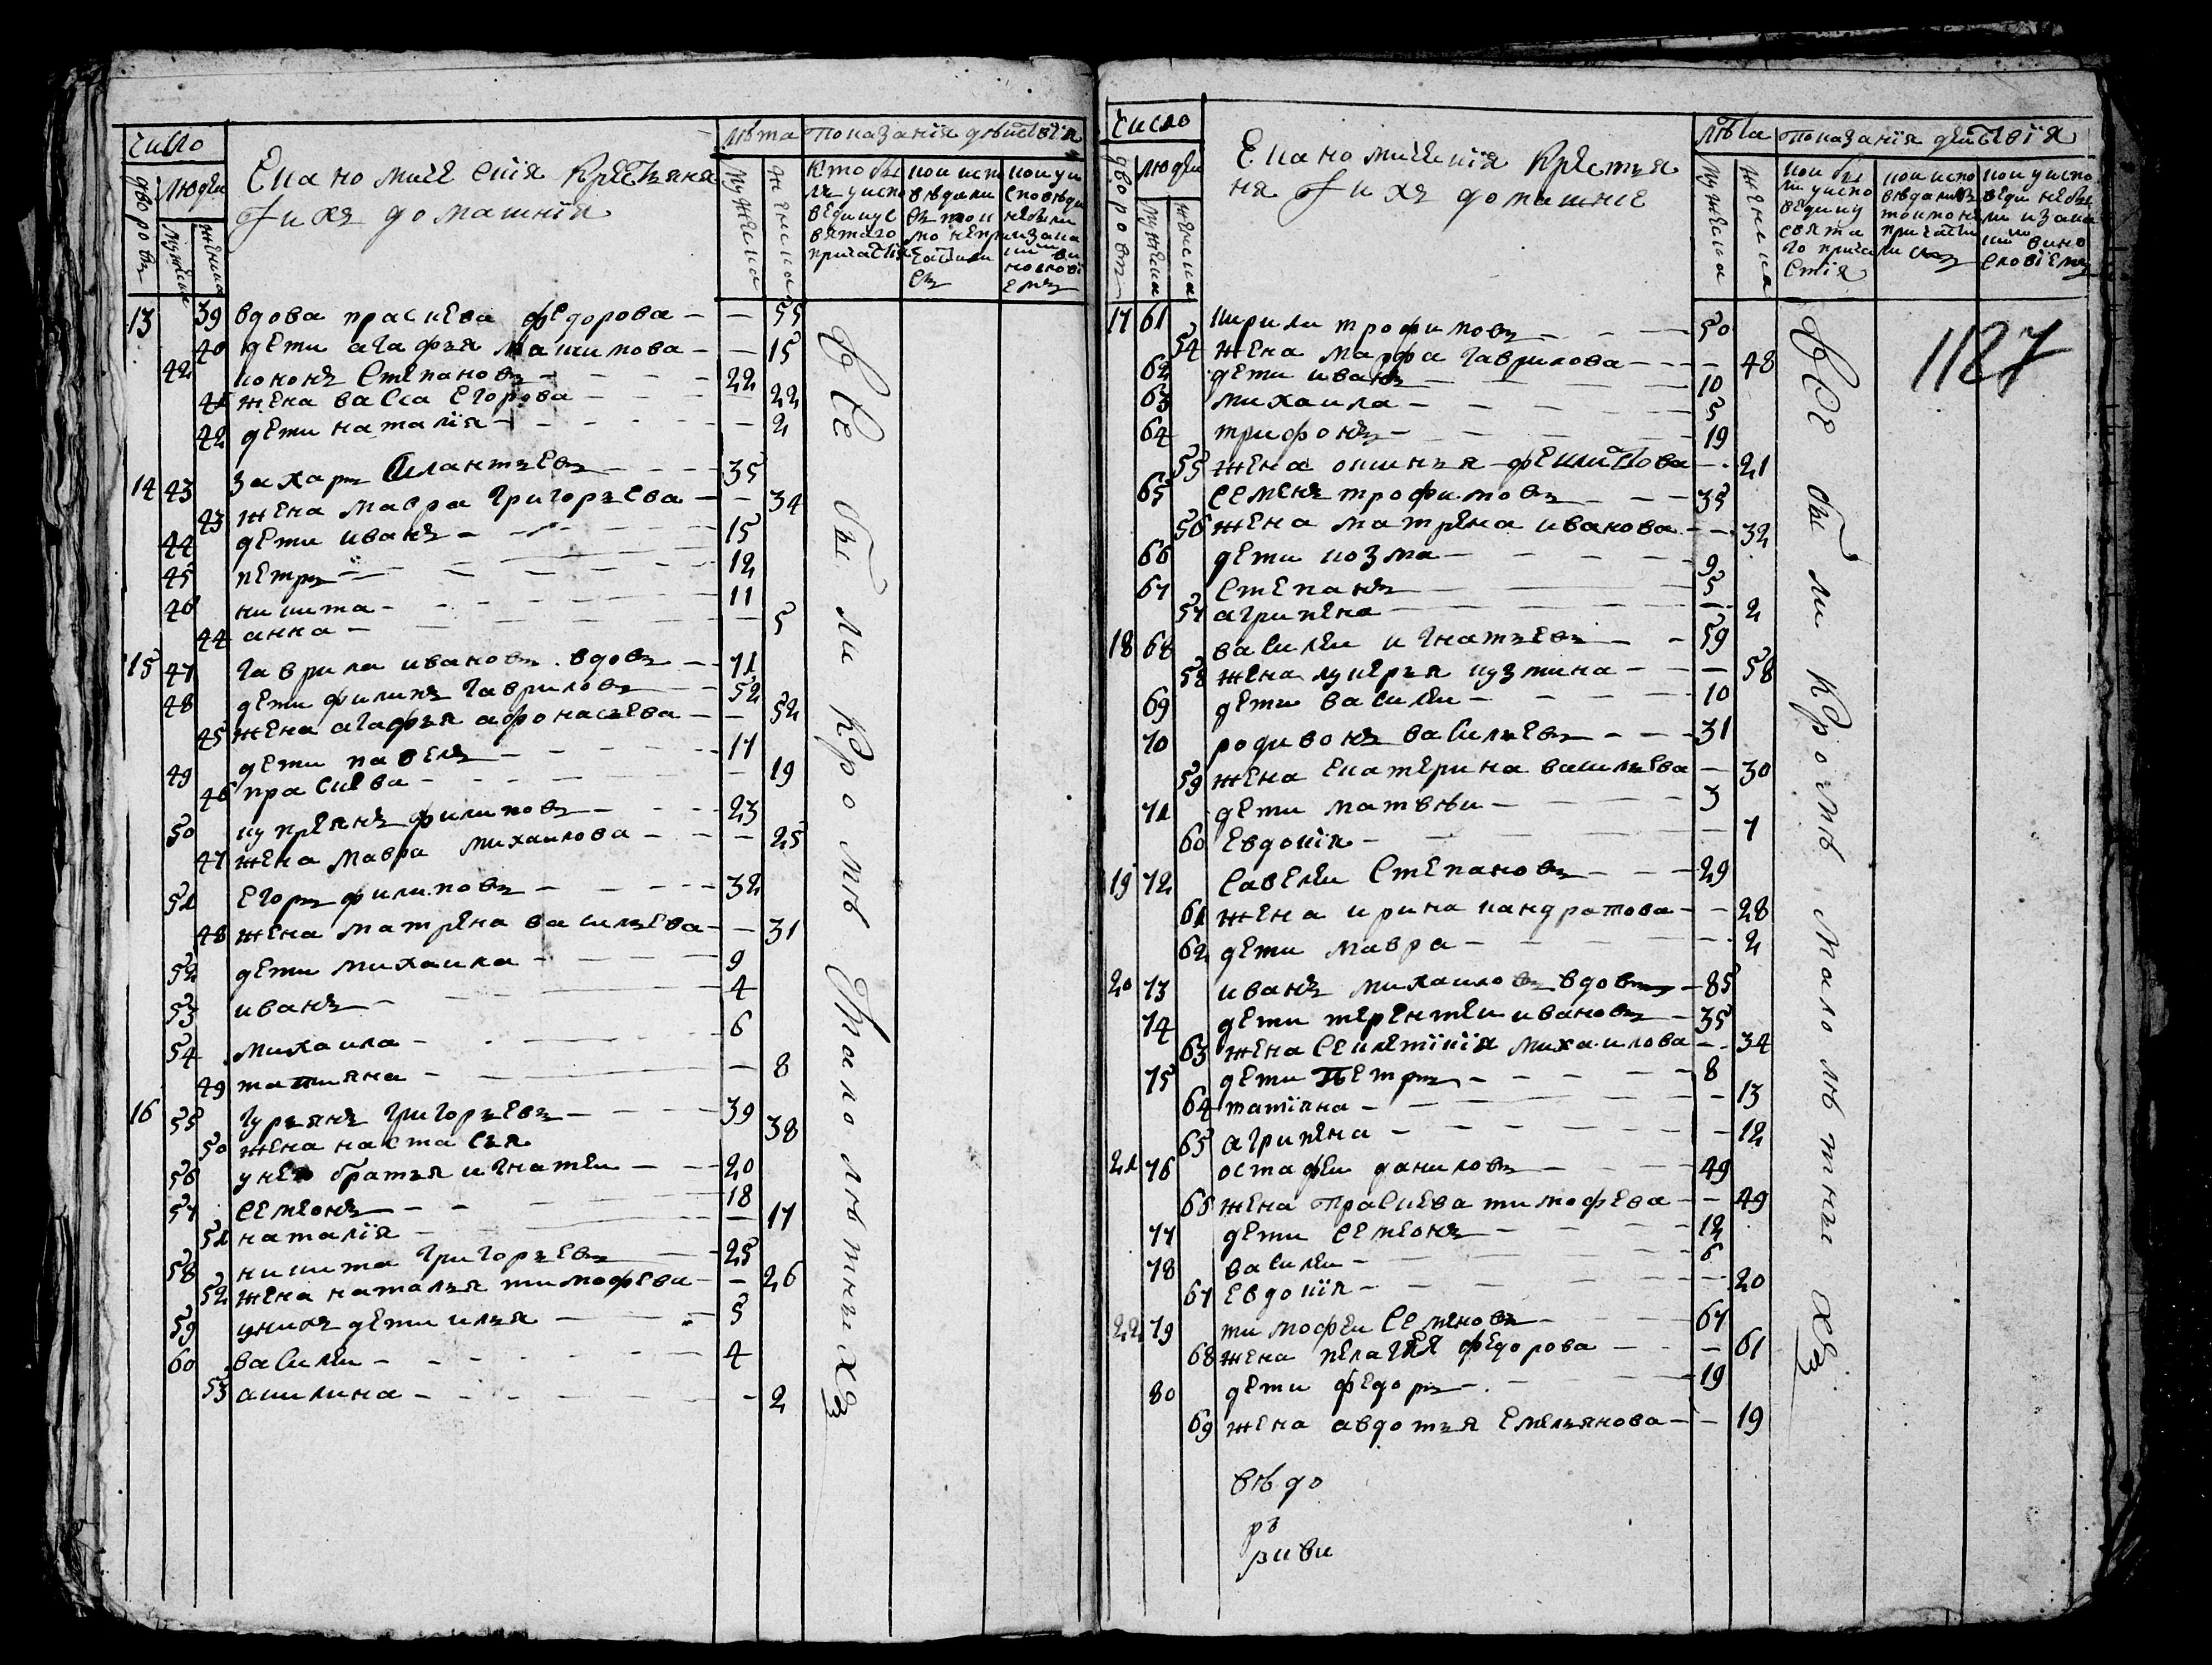 число
люди
дворовъ
мужеска
женска
Екакономическия крестьяня
и ихъ домашния
лѣта
показанія дѣиствія
мужеска
женска
кто бы
лъ у испо
веди и у с
вятаго
причастия
кои испо
вѣдали
съ токи
мо непри
частили
съ
кои у и
споведи
не были
и за ка
кимъ ви
нослові
емъ
13 39 вдова праскева федорова - - 55
40 дети агафья максимова - - 15
42 кононъ степановъ - 22
41 жена васса егорова - 22
42 дети наталія - 2
14 43 захаръ силантьевъ - 35
43 жена мавра григорьева - - 34
44 дети иванъ - 15
45 петръ - 12
46 никита - 11
44 анна - 5
15 47 гаврила ивановъ вдовъ - 71
48 дети филипъ гавриловъ - 52
45 жена агафья афонасьева - - 52
49 дети павелъ - 17
46 праскева - 19
50 купреянъ филиповъ - 23
47 жена мавра михаилова - - 25
51 егоръ филиповъ - 32
48 жена матрена васильева - - 31
52 дети михаила - 9
53 иванъ - 4
54 михаила - 6
49 татияна - 8
16 55 гурьянъ григорьевъ - 39
50 жена настасья 38
56 у нево братья игнатеи - 20
57 семионъ - 18
51 наталія - 17
58 никита григорьевъ - 25
52 жена наталья тимофева - - 26
59 у нихъ дети илья - 5
60 василеи - 4
53 акилина - 2
все были кромѣ малолѣтныхъ
число
люди
дворовъ
мужеска
женска
Екакономическия крестья
ня и ихъ домашние
лѣта
показанія дѣиствія
мужеска
женска
кои бы
ли у испо
веди и у
свята
го прича
стія
кои испо
вѣдались
токмо не
причасти
лись
кои у испо
веди не бы
ли и за ка
кимъ вино
словіемъ
1127
17 61 кирила трофимовъ - 50
54 жена марфа гаврилова - - 48
62 дети иванъ - 10
63 михаила - 5
64 трифонъ - 19
55 жена оксинья феклистова - 21
65 семенъ трофимовъ - 35
56 жена матрена иванова - - 32
66 дети козма - 9
67 степанъ - 5
57 агрипена - 2
18 68 василеи игнатьевъ - 59
58 жена лукерья кузмина - - 58
69 дети василеи - 10
70 родивонъ васильевъ - 31
59 жена екатерина васильева - 30
71 дети матвѣи - 3
60 евдокія - 7
19 72 савелеи степановъ - 29
61 жена ирина кандратова - - 28
62 дети мавра - 2
20 73 иванъ михаиловъ вдовъ - 85
74 дети терентеи ивановъ - 35
63 жена секлетикія михаилова - - 34
75 дети петръ - 8
64 татіяна - 13
65 агрипена - 12
21 76 остафеи даниловъ - 49
66 жена праскева тимофева - - 49
77 дети семионъ - 12
78 василеи - 6
67 евдокія - 20
22 79 тимофеи семеновъ - 67
68 жена пелагея федорова - - 61
80 дети федоръ - 19
69 жена авдотья емельянова - - 19
все были кромѣ малолѣтныхъ
вѣдо